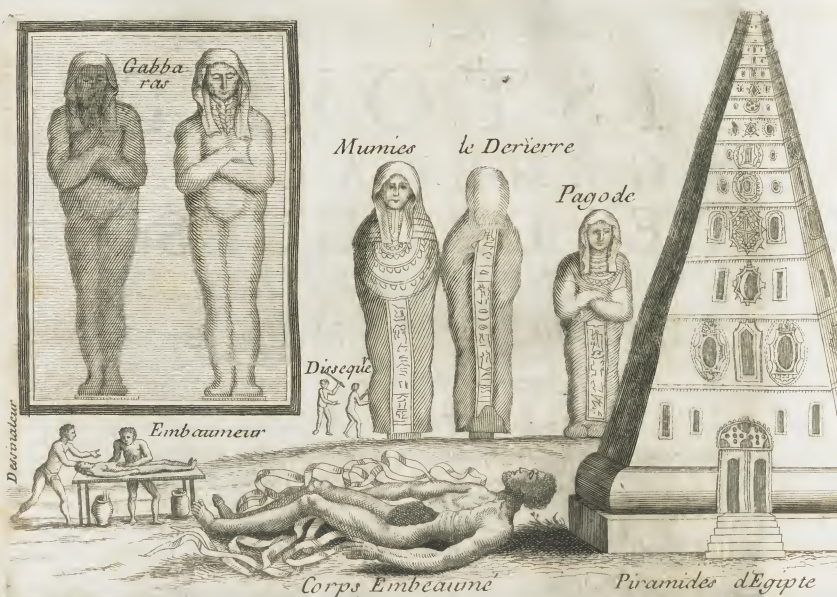 Gabba
ras
Mumies
le Derierre
Pagode
Disseque
Embaumeur
Desinateur
Corps Embeaumé
Piramides d'Egipte